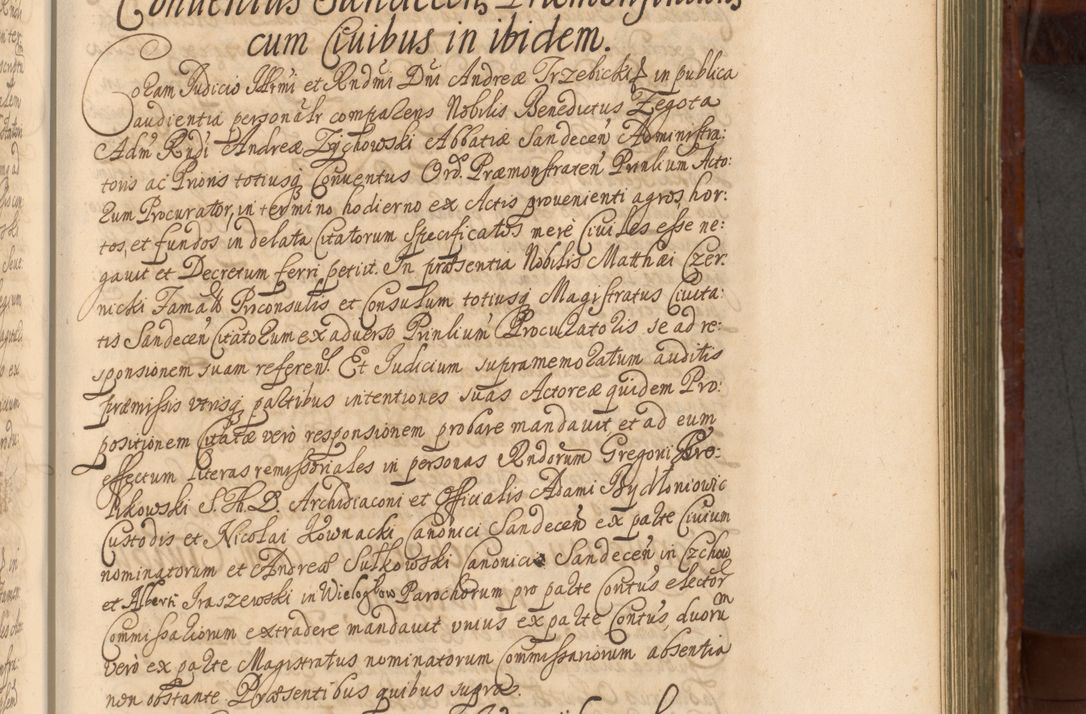 Conventus Sandecen Præmonstraten
cum Civibus in ibidem.
Coram Judicio Illrmi et Rndmi Dni Andreæ Trzebicki in publica
audientia personalr comparens Nobilis Benedictus Zegota
Adm Rndi Andreæ Zychowski Abbatiæ Sandecen Administra:
toris ac Prioris totiusq Conventus Ord. Præmonstraten Prinlium Acto:
rum Procurator, in termino hodierno ex Actis provenienti agros, hor:
tos, et fundos in delata Citatorum specificatos merè Civiles esse ne:
gavit et Decretum ferri petiit. In præsentia Nobilis Matthæi Czer:
nicki Famati Proconsulis et Consulum totiusq Magistratus Civita:
tis Sandecen Citatorum ex adverso Prinlium Procuratoris se ad re:
sponsionem suam referen. Et Judicium supramemoratum auditis
præmissis utrisq partibus intentiones suas Actoreæ quidem Pro:
positionem Citatæ verò responsionem probare mandavit et ad eum
effectum literas remissoriales in personas Rndorum Gregorii
S. Th. D. Archidiaconi et Officialis Adami Bydloniowic
Custodis et Nicolai Kownacki Canonici Sandecen ex parte Civium
nominatorum et Andreæ Sulkowski Canonici Sandecen in Czchow
et Alberti Iraszewski in Wieloglow Parochorum pro parte Contus elector
Commissariorum extradere mandavit unius ex parte Contus, duorum
verò ex parte Magistratus nominatorum Commissariorum absentia
non obstante Præsentibus quibus supra.